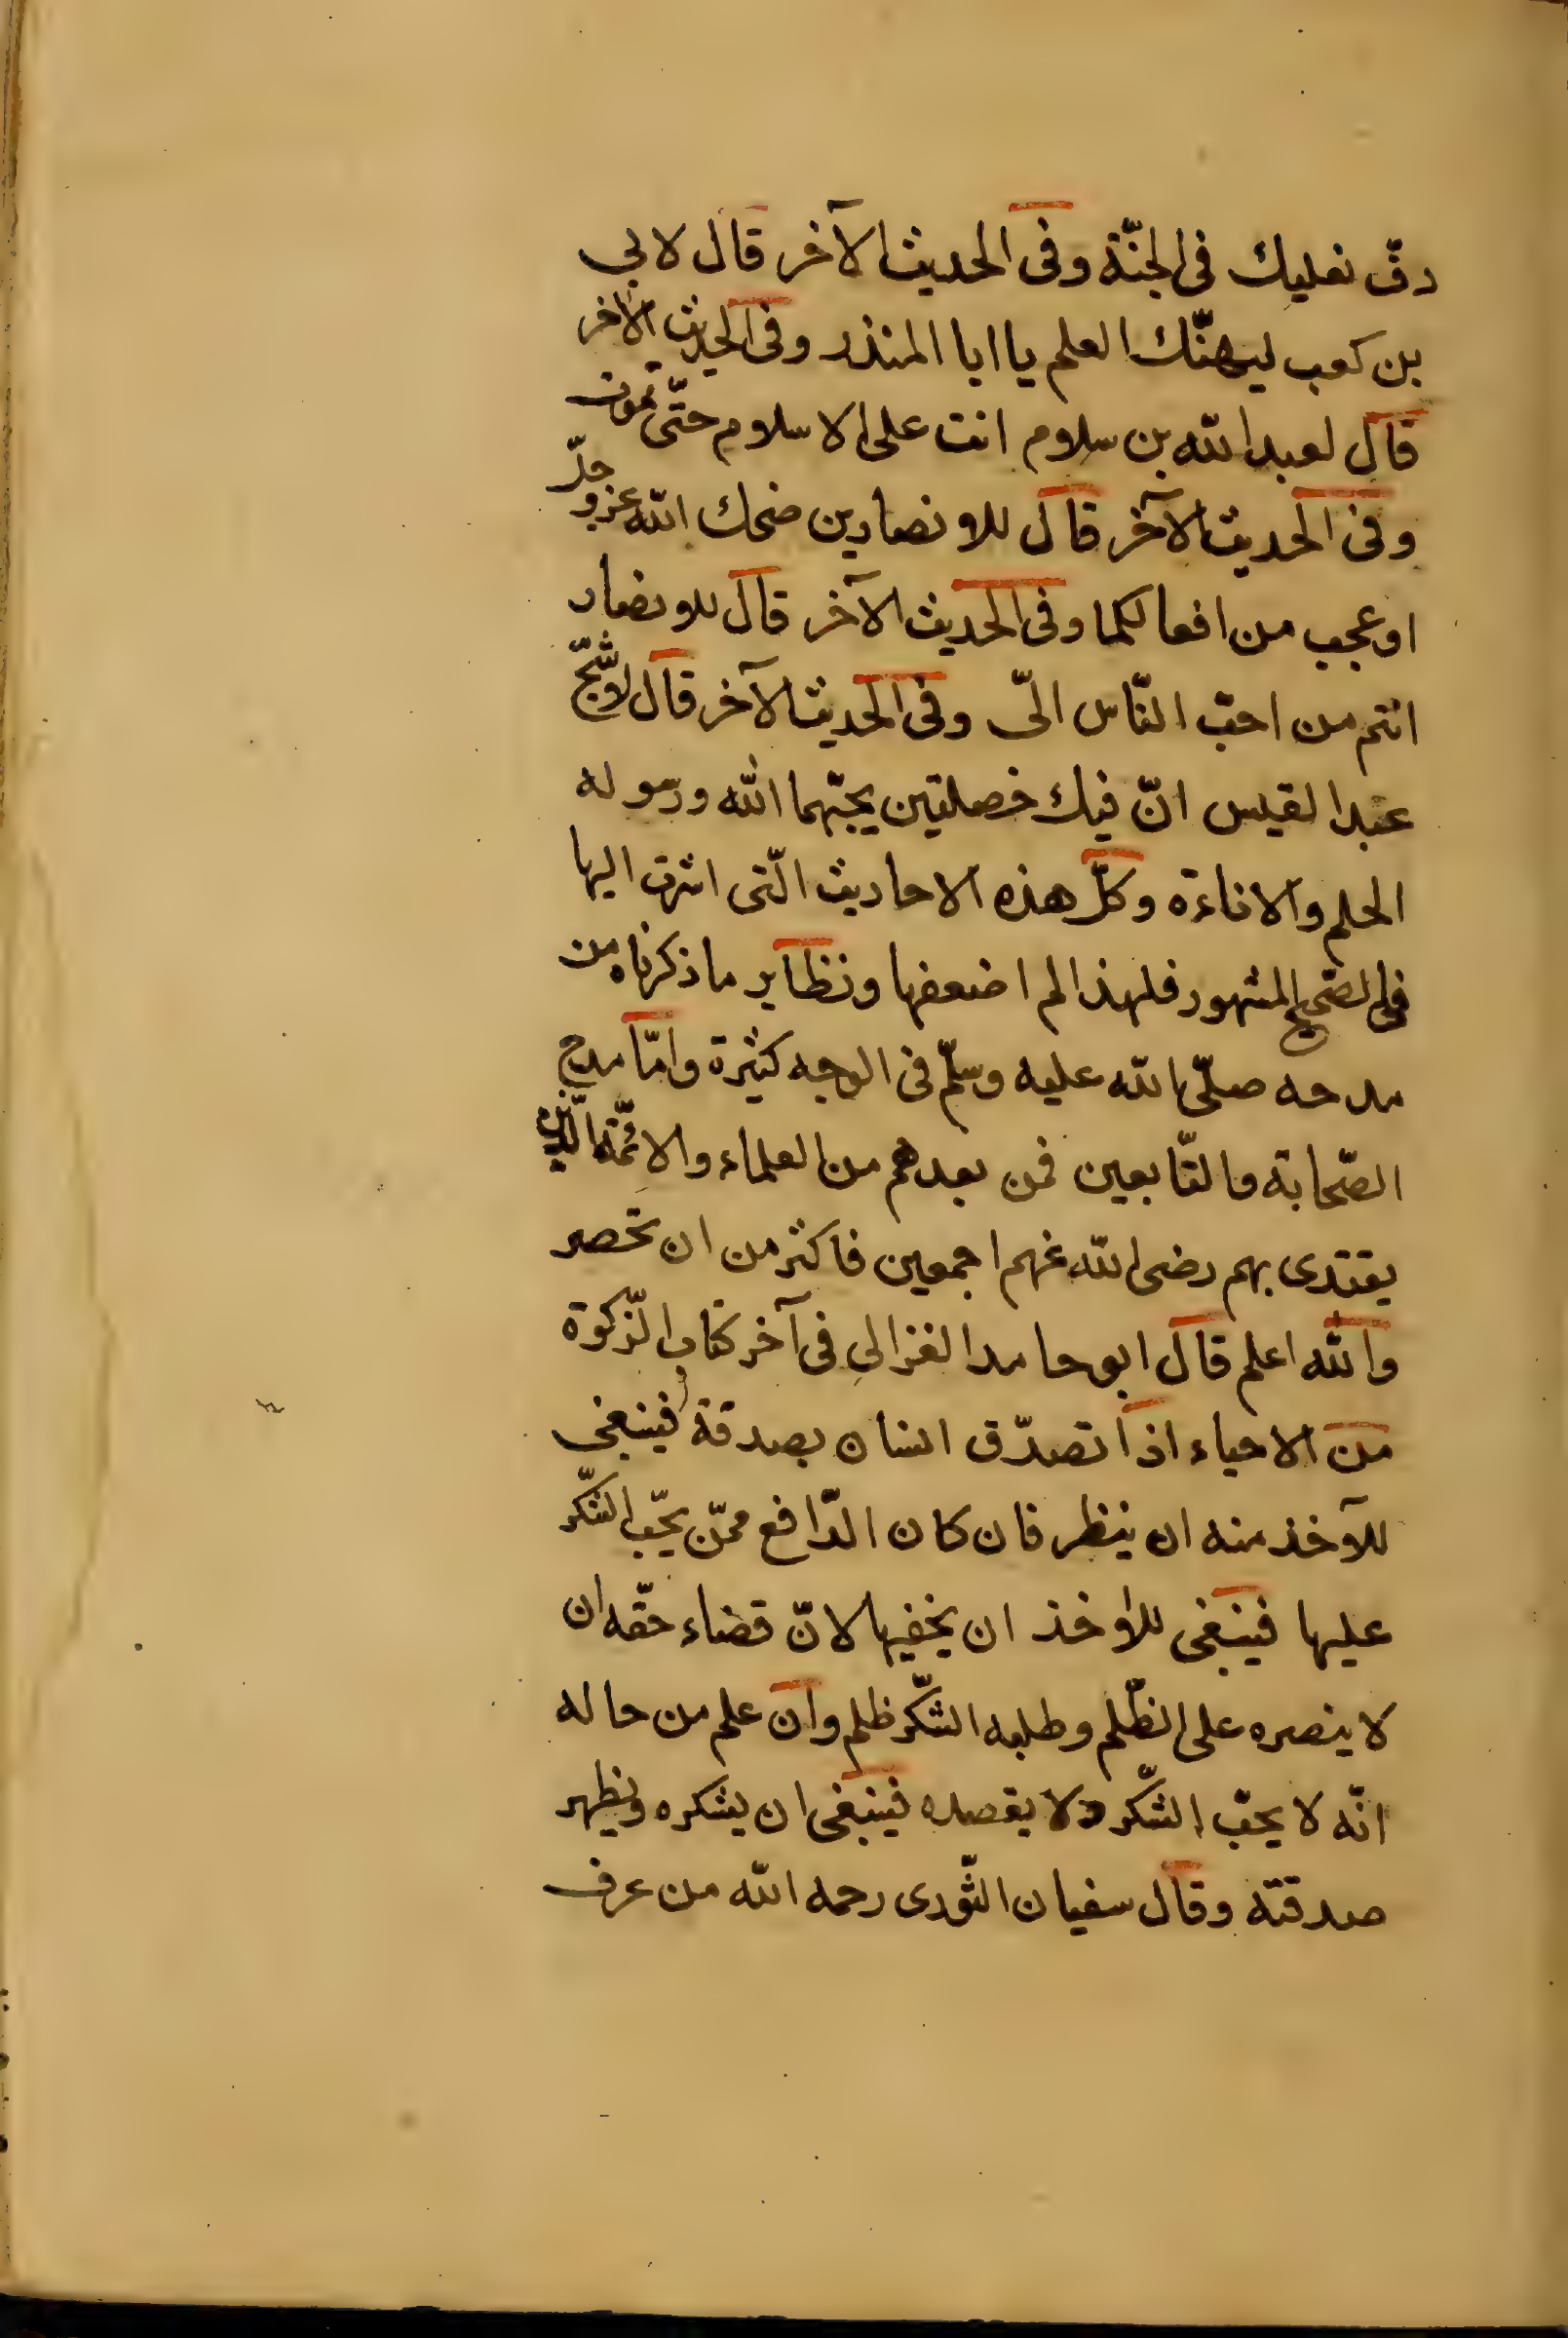 دقّ نعليك فى الجنّة وفى الحديث الآخر قال لابي
بن كعب ليهنّك العلم يا ابا المنذر وفى الحديث الآخر
قال لعبد الله بن سلام انت على الاسلام حتّى تموت
وفى الحديث الآخر قال للانصاريين ضحك الله عزو جلّ
او عجب من افعالكما وفى الحديث الآخر قال للانصار
انتم من احبّ النّاس الىّ وفى الحديث الآخر قال لاشجّ
عبد القيس انّ فيك خصلتين يحبّهما الله ورسوله
الحلم والاناءة وكلّ هذه الاحاديث الّتى اشرت اليها
فى الصّحيح المشهور فلهذا لم اضعفها ونظاير ما ذكرناه من
مدحه صلّى الله عليه وسلّم فى الوجه كثيرة وامّا مدح
الصّحابة والتّابعين فمن بعدهم من العلماء والائمّة الّذين
يقتدى بهم رضى الله عنهم اجمعين فاكثر من ان تحصر
والله اعلم قال ابو حامد الغزالى فى آخر كتاب الزّكوة
من الاحياء اذا تصدّق انسان بصدقة فينبغى
للآخذ منه ان ينظر فان كان الدّافع ممّن يحبّ الشّكر
عليها فينبغى للاخذ ان يخفيها لانّ قضاء حقّه ان
لا ينصره على الظّلم وطلبه الشّكر ظلم وان علم من حاله
انّه لا يحبّ الشّكر ولا يقصده فينبغى ان يشكره ويظهر
صدقته وقال سفيان الثّورى رحمه الله من عرف